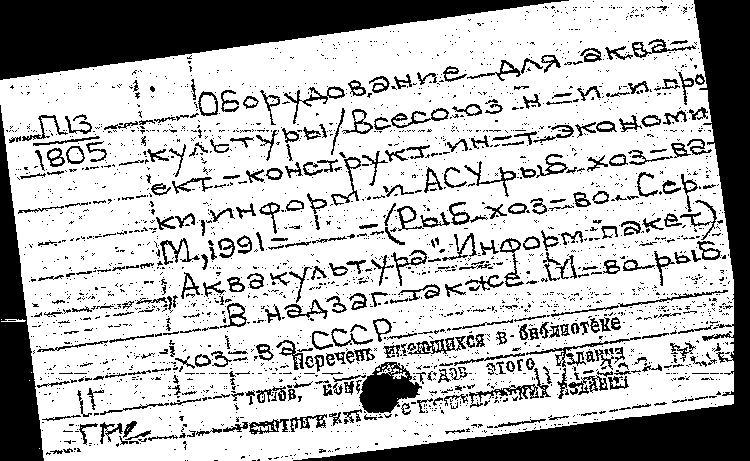 П13
1805
Оборудование для аква=
культуры/Всесоюз н.-и. и про
ект-конструкт ин-т экономи
ки, информ и АСУ рыб. хоз=ва
М., 1991= . -(Рыб хоз=во. Сер
Аквакультура": Информ пакет).
В надзаг также: М=во рыб.
хоз=ва СССР
Перечень имеющихся в библиотеке
томов, годов этого издания
смотри в периодических изданий